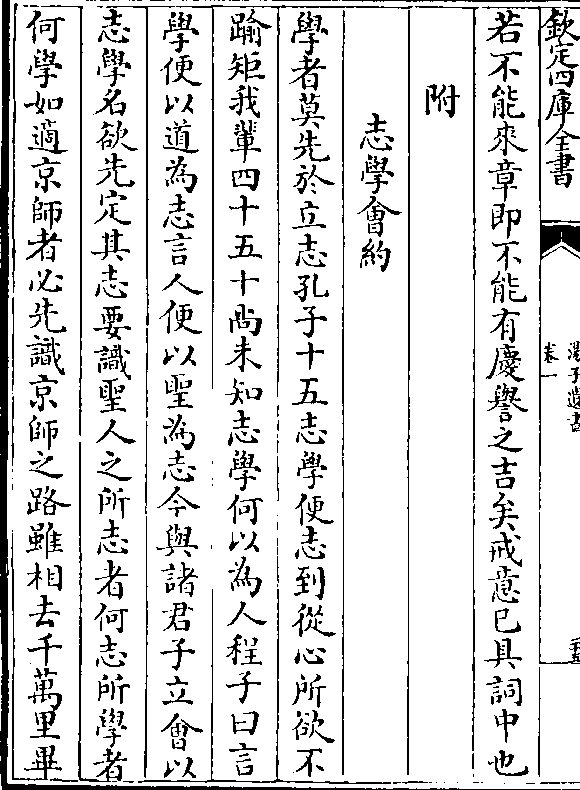 欽定四庫全書
湯子遺書
卷一
若不能來章即不能有慶譽之吉矣戒意已具詞中也
附
志學會約
學者莫先於立志孔子十五志學便志到從心所欲不
踰矩我輩四十五十尚未知志學何以為人程子曰言
學便以道為志言人便以聖為志今與諸君子立會以
志學名欲先定其志要識聖人之所志者何志所學者
何學如適京師者必先識京師之路雖相去千萬里畢